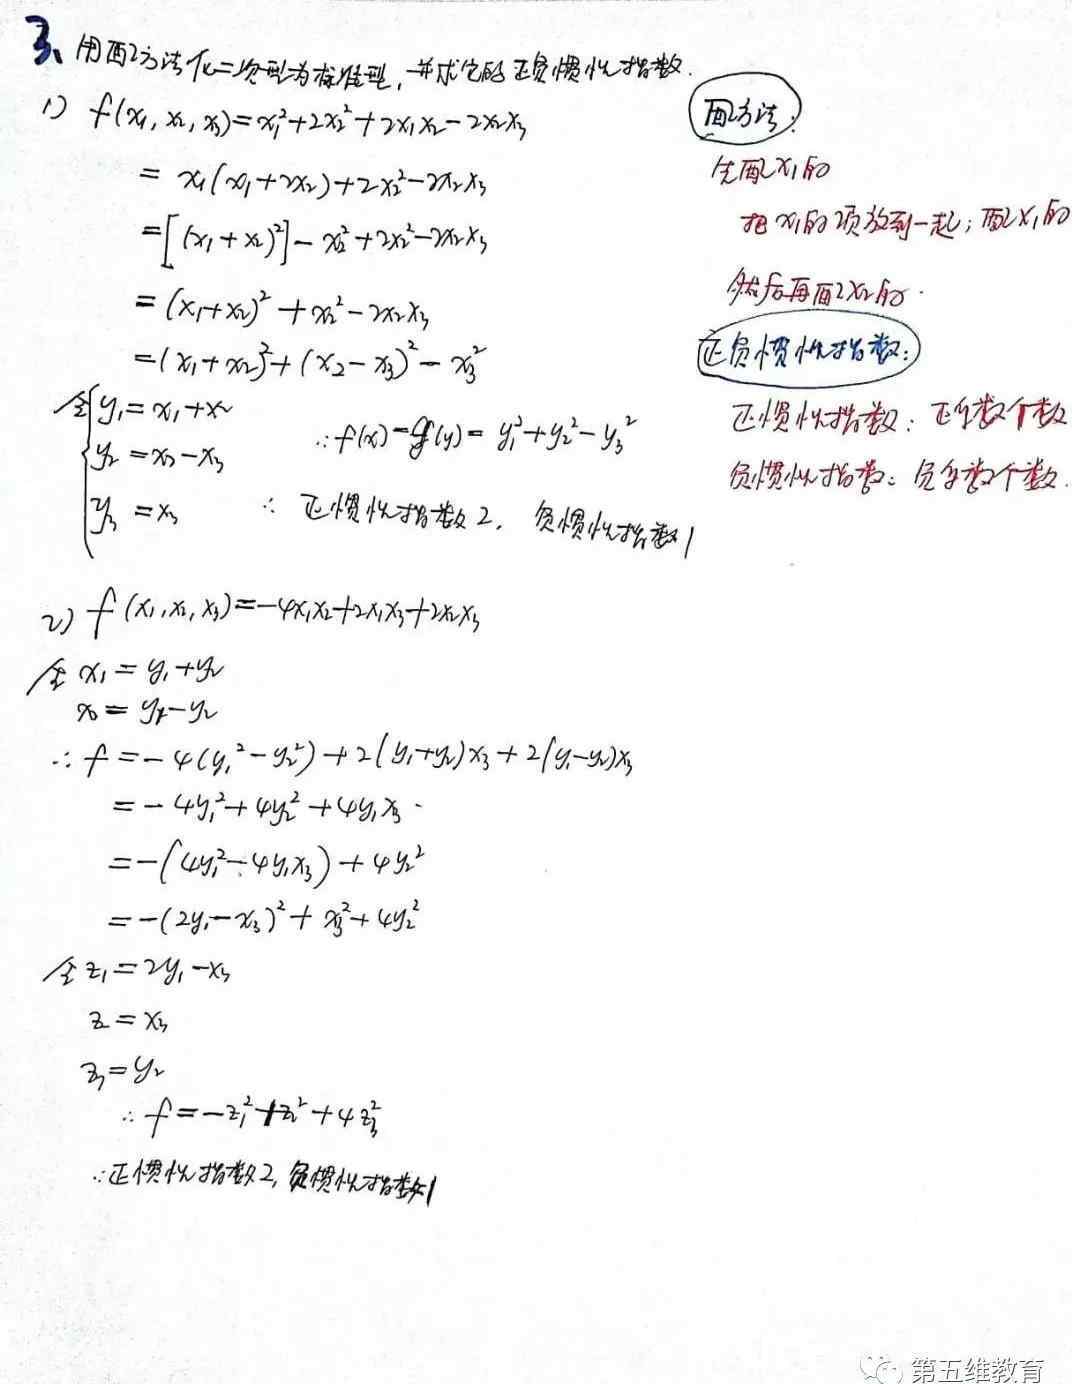 3、用配方法化二次型为标准型，并求它的正负惯性指数.
1) f(x₁, x₂, x₃)=x₁²+2x₂²+2x₁x₂-2x₂x₃
= x₁(x₁+2x₂)+2x₂²-2x₂x₃
=[(x₁+x₂)²]-x₂²+2x₂²-2x₂x₃
=(x₁+x₂)²+x₂²-2x₂x₃
=(x₁+x₂)²+(x₂-x₃)²-x₃²
令{y₁=x₁+x₂
y₂=x₂-x₃
y₃=x₃
∴f(x)=g(y)= y₁²+y₂²-y₃²
∴ 正惯性指数2, 负惯性指数1
配方法:
先配x₁的
把x₁的项放到一起; 配x₁的
然后再配x₂的.
正负惯性指数:
正惯性指数: 正系数个数
负惯性指数: 负系数个数.
2) f(x₁,x₂,x₃)=-4x₁x₂+2x₁x₃+2x₂x₃
令 x₁=y₁+y₂
x₂=y₁-y₂
∴ f=-4(y₁²-y₂²)+2(y₁+y₂)x₃+2(y₁-y₂)x₃
=-4y₁²+4y₂²+4y₁x₃
=-(4y₁²-4y₁x₃)+4y₂²
=-(2y₁-x₃)²+x₃²+4y₂²
令z₁=2y₁-x₃
z₂=x₃
z₃=y₂
∴ f=-z₁²+z₂²+4z₃²
∴正惯性指数2, 负惯性指数1
第五维教育